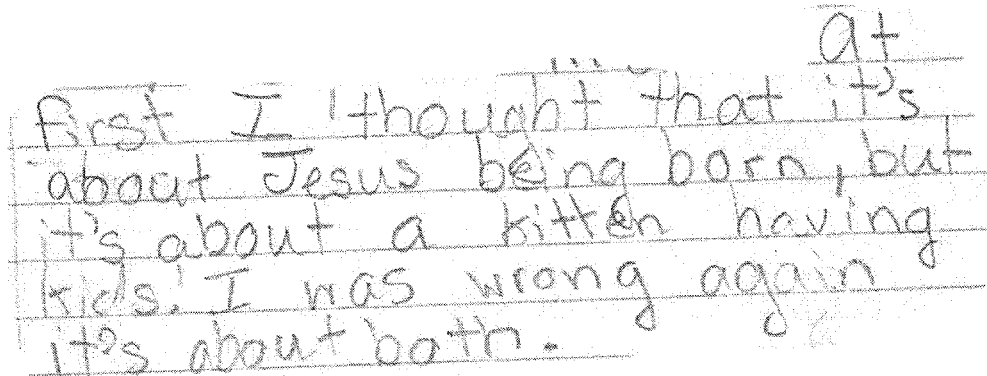 At
first I thought that it's
about Jesus being born, but
it's about a kitten having
kids. I was wrong again
it's about both.